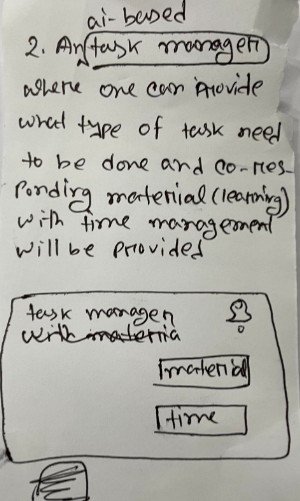 ai-based
2. An task manager
where one can provide
what type of task need
to be done and co-rres-
ponding material (learning)
with time management
will be provided
task manager
with materia
material
time